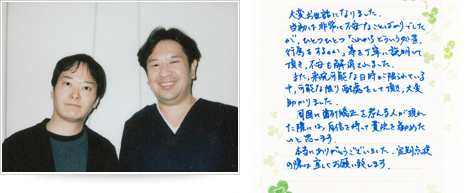 大変お世話になりました。
当初は非常に不安なことばかりでした
が、ひとつひとつ「これからどういう処置、
行為をするのか」等を丁寧に説明して
頂き、不安も解消されました。
また、来院可能な日時が限られている
中、可能な限り配慮をして頂き、大変
助かりました。
周囲に歯列矯正を考える人が現れ
た際には、自信を持って貴院を勧めた
いと思います。
本当にありがとうございました。定期点検
の際は宜しくお願い致します。